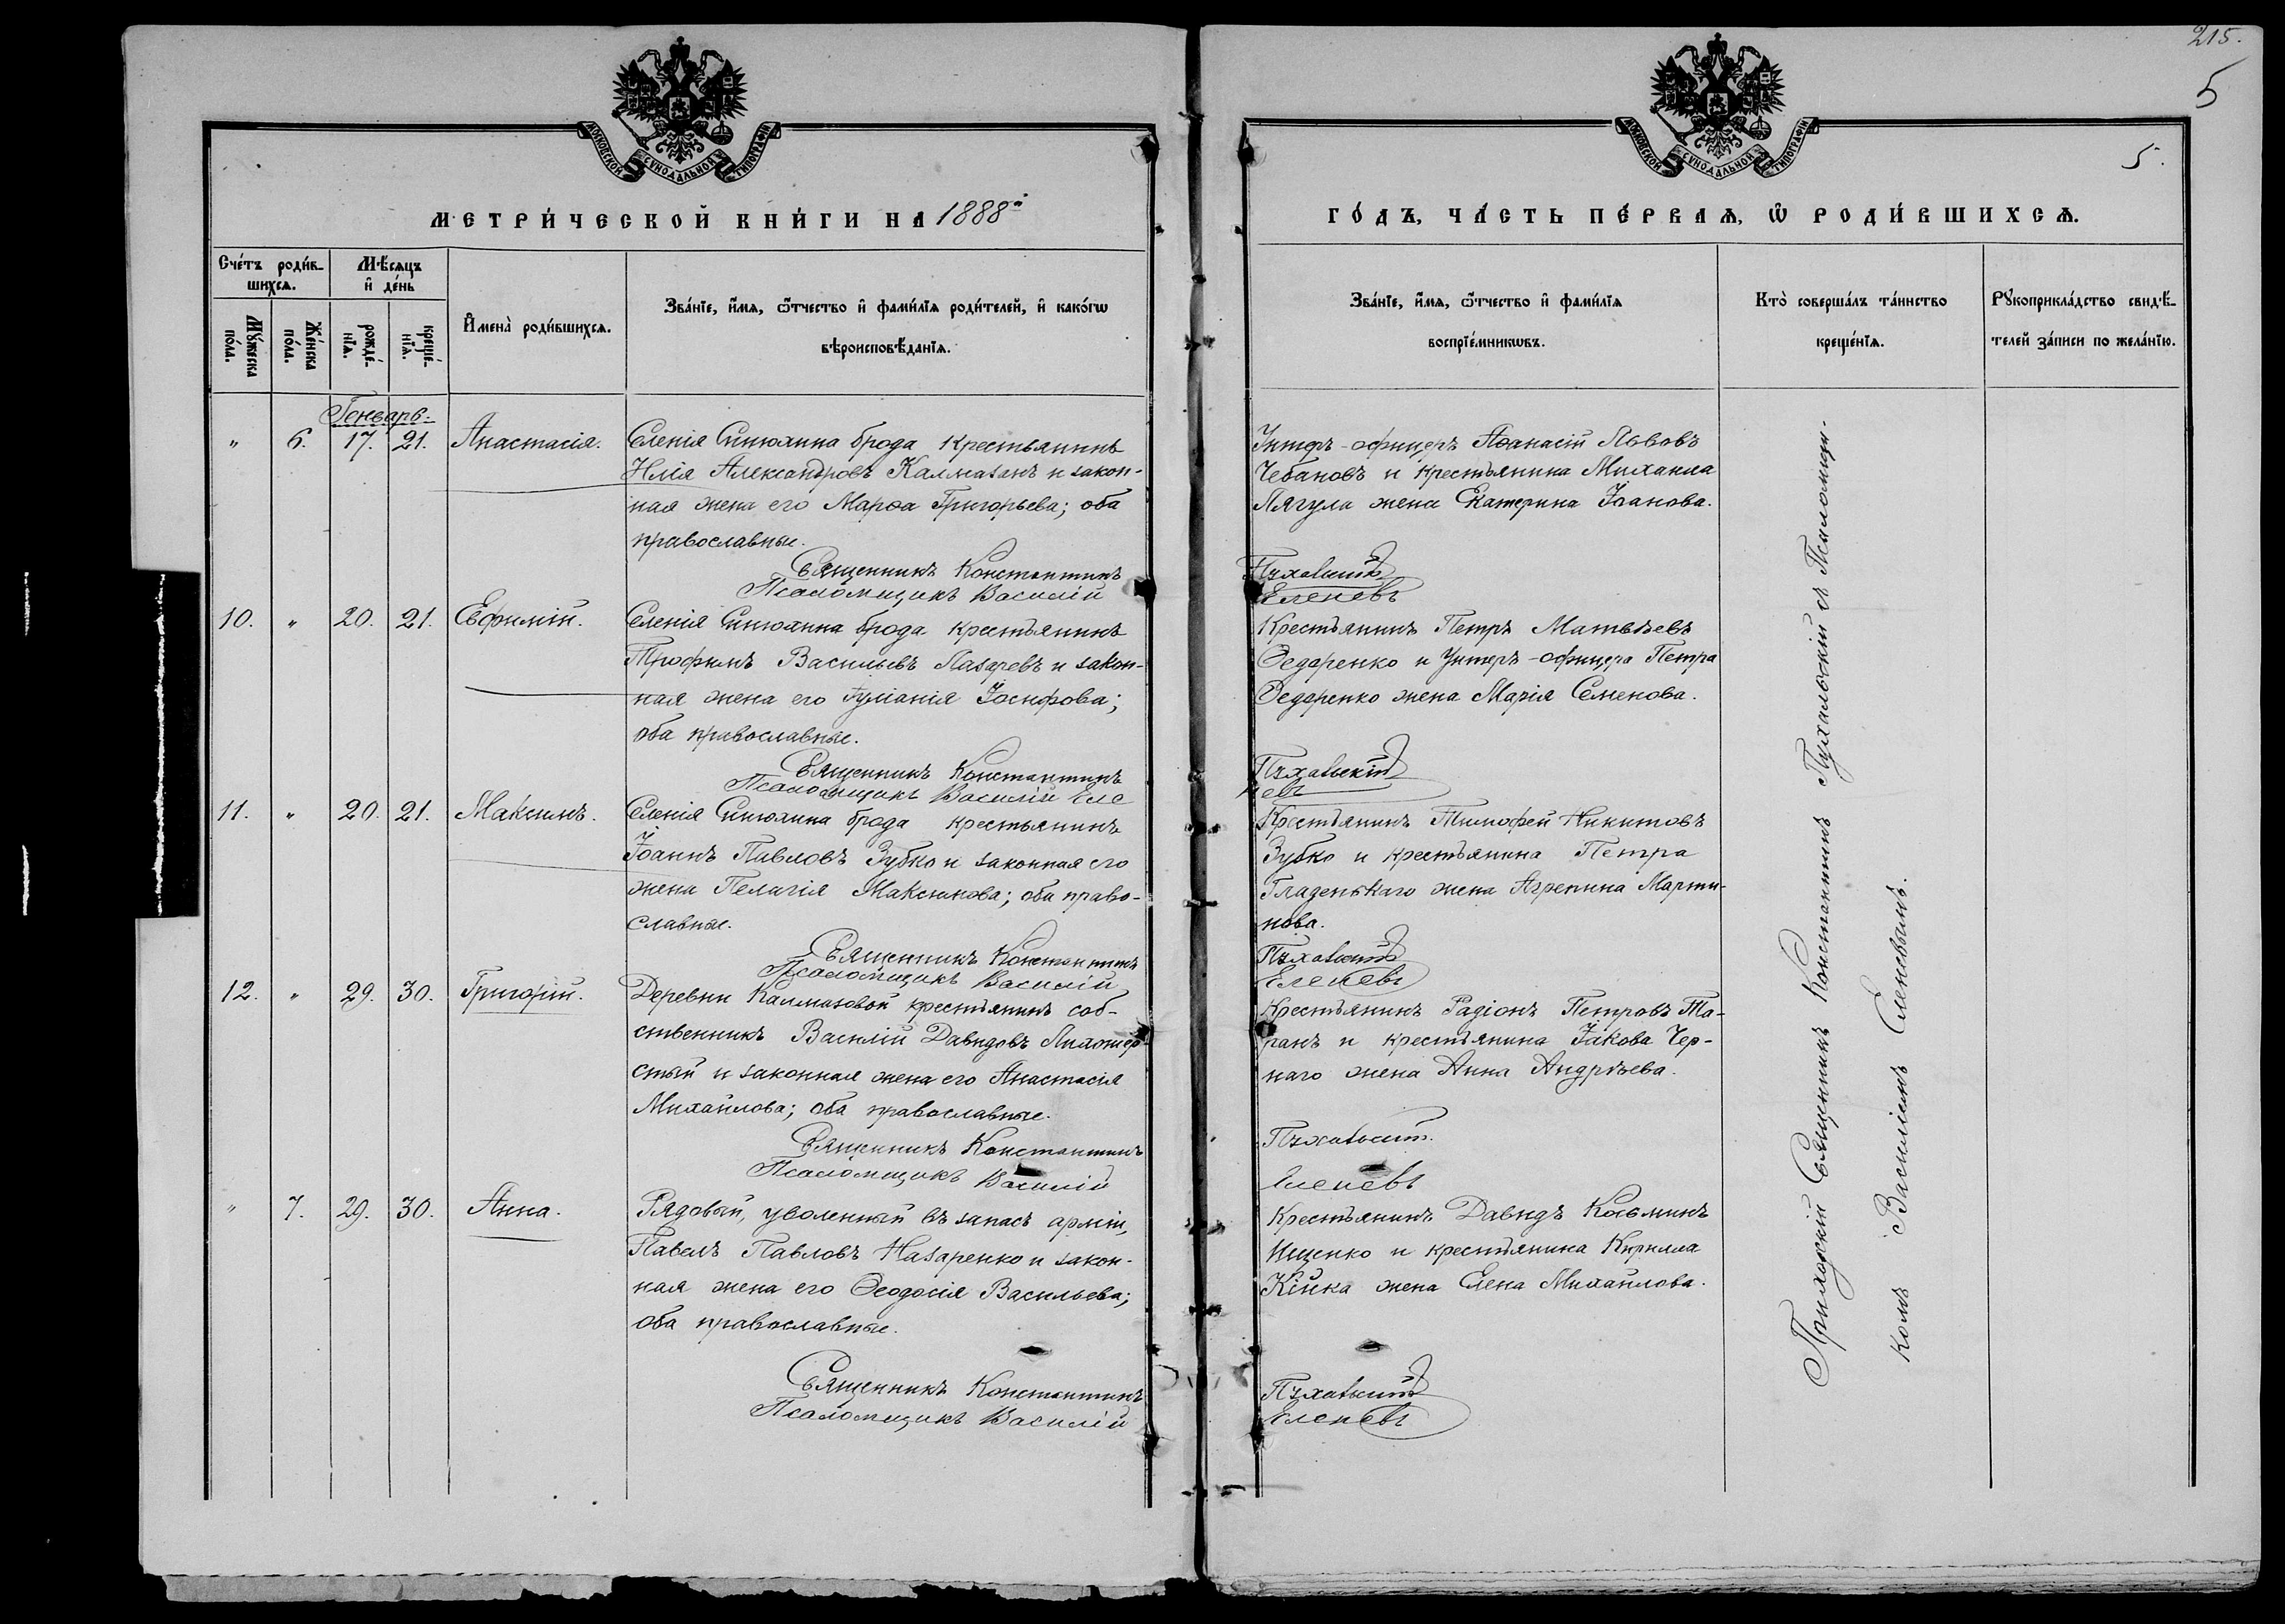 215.
5
5.
МОСКОВСКОЙ СѴНОДАЛЬНОЙ ТИПОГРАФІИ
МОСКОВСКОЙ СѴНОДАЛЬНОЙ ТИПОГРАФІИ
МЕТРИ́ЧЕСКОЙ КНИ́ГИ НА 1888й
ГО́ДЪ, ЧА́СТЬ ПЕ́РВАѦ, Ѡ РОДИ́ВШИХСѦ.
Сче́тъ роди́в-
шихсѧ.
Мꙋ́жеска
по́ла.
Же́нска
по́ла.
Мѣ́сѧцъ
и де́нь
рожде́-
нїѧ.
креще́-
нїѧ.
Имена̀ роди́вшихсѧ.
Зва́нїе, и́мѧ, ѻ́тчество и фами́лїѧ роди́телей, и како́гѡ
вѣроисповѣ́данїѧ.
Зва́нїе, и́мѧ, ѻ́тчество и фами́лїѧ
воспрїе́мникѡвъ.
Кто̀ соверша́лъ та́инство
креще́нїѧ.
Рꙋкоприкла́дство свидѣ́-
телей за́писи по жела́нїю.
Генварь.
" 6. 17. 21. Анастасія.
Селенія Синюхина брода крестьянинъ
Илія Александровъ Калмазанъ и закон-
ная жена его Марѳа Григорьева; оба
православные.
Священникъ Константинъ
Псаломщикъ Василій
Унтеръ-офицеръ Аѳанасій Львовъ
Чебановъ и крестьянина Михаила
Лягула жена Екатерина Іоанова.
Пухальскій
Еленевъ
10. " 20. 21. Евфимій.
Селенія Синюхина брода крестьянинъ
Трофимъ Васильевъ Лазаревъ и закон-
ная жена его Іуліанія Іосифова;
оба православные.
Священникъ Константинъ
Псаломщикъ Василій Еле
Крестьянинъ Петръ Матвѣевъ
Ѳедоренко и Унтеръ-офицера Петра
Ѳедоренко жена Марія Семенова.
Пухальскій
невъ
11. " 20. 21. Максимъ.
Селенія Синюхина брода крестьянинъ
Іоаннъ Павловъ Зубко и законная его
жена Пелагія Максимова; оба право-
славные.
Священникъ Константинъ
Псаломщикъ Василій
Крестьянинъ Тимофей Никитовъ
Зубко и крестьянина Петра
Гладенькаго жена Агрепина Марти-
нова.
Пухальскій
Еленевъ
12. " 29. 30. Григорій.
Деревни Калмазовой крестьянинъ соб-
ственникъ Василій Давидовъ
и законная жена его Анастасія
Михайлова; оба православные.
Священникъ Константинъ
Псаломщикъ Василій
Крестьянинъ Радіонъ Петровъ Та-
ранъ и крестьянина Іакова Чер-
наго жена Анна Андрѣева.
Пухальскій
Еленевъ
" 7. 29. 30. Анна.
Рядовый, уволенный въ запасъ арміи,
Павелъ Павловъ Назаренко и закон-
ная жена его Ѳеодосія Васильева;
оба православные.
Священникъ Константинъ
Псаломщикъ Василій
Крестьянинъ Давидъ Косьминъ
Ищенко и крестьянина Кирилла
Кійка жена Елена Михайлова.
Пухальскій
Еленевъ
Приходскій Священникъ Константинъ Пухальскій съ Псаломщи-
комъ Василіемъ Еленевымъ.